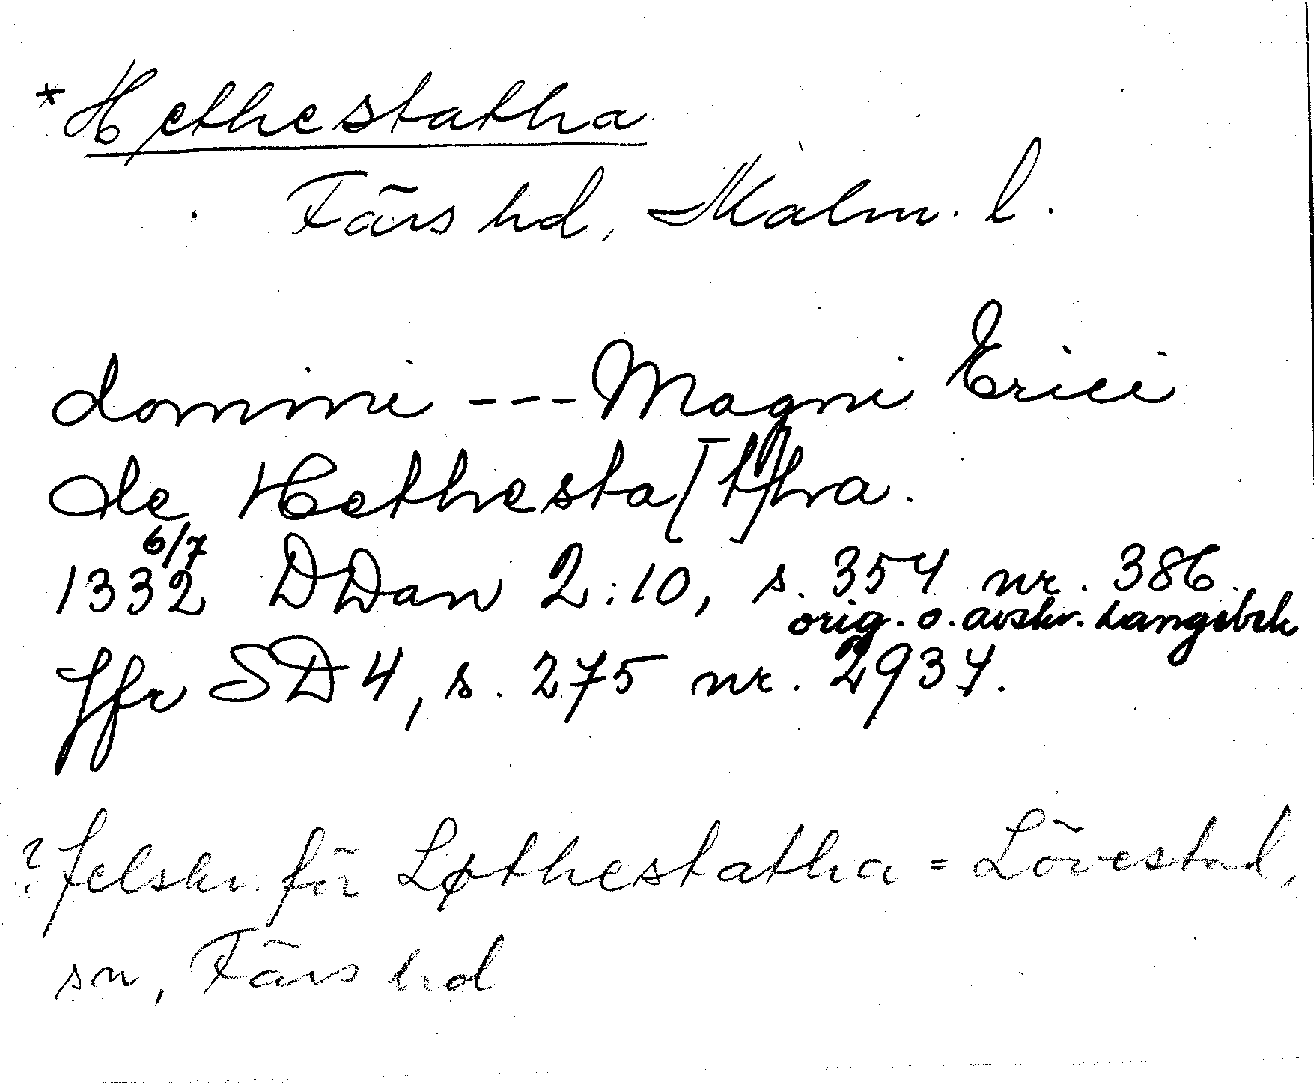 *Hethestatha
Färs hd, Malm. l.
domini --- Magni Erici
de Hethesta[t]ha.
1332 6/7 DDan 2:10, s. 354 nr. 386.
orig. o. avskr. Langebek
Jfr SD 4, s. 275 nr. 2937.
? felskr. för Løthestatha = Lövestad,
sn, Färs hd